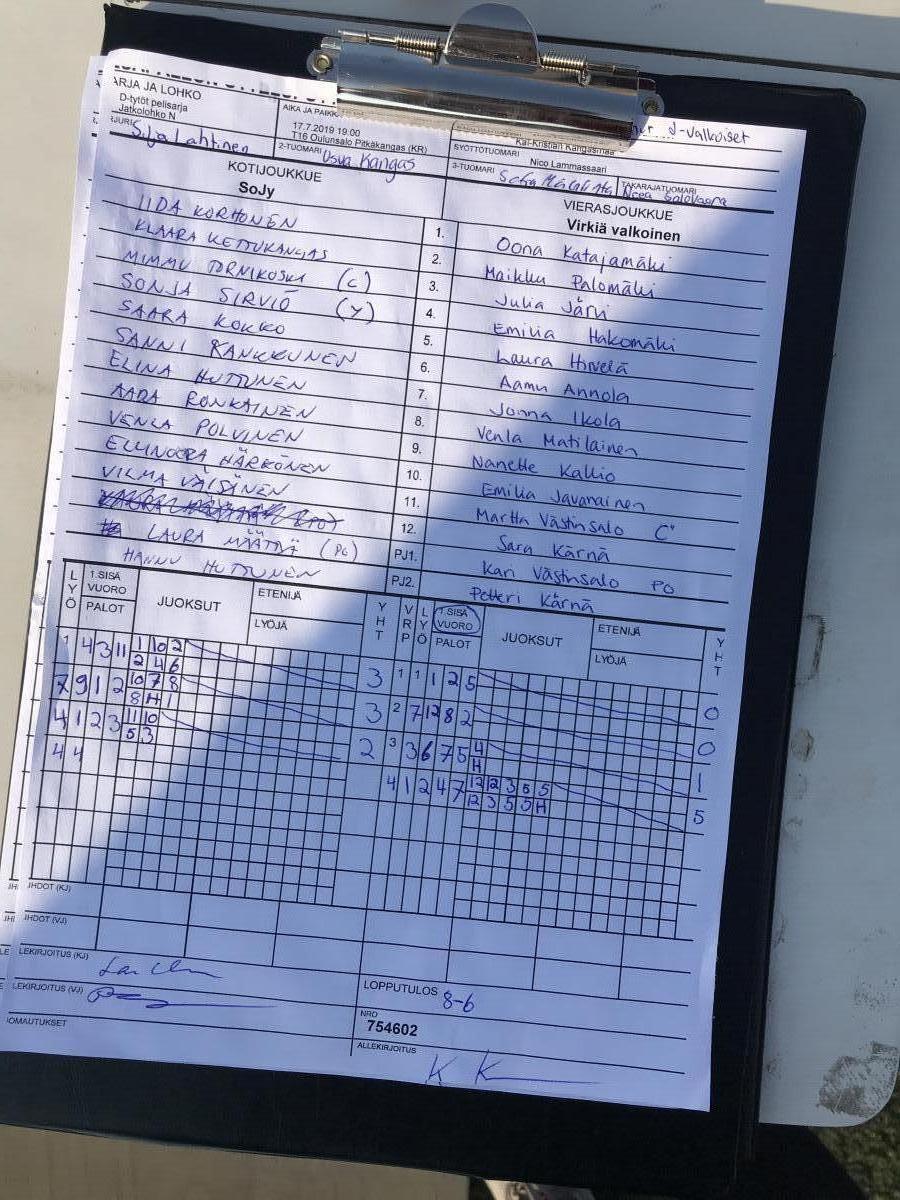 ARJA JA LOHKO
D-tytöt pelisarja
Jatkolohko N
AIKA JA PAIKK
17.7.2019 19:00
T16 Oulunsalo Pitkäkangas (KR)
J-valkoiset
Kai-Kristian Kangasmaa
SYÖTTÖTUOMARI
Nico Lammassaari
Silja Lahtinen
2-TUOMARI
Kangas
3-TUOMARI
TAKARAJATUOMARI
Salovaara
KOTIJOUKKUE
SoJy
VIERASJOUKKUE
Virkiä valkoinen
IIDA KORHONEN 1. Oona Katajamäki
KLAARA KETTUKANGAS 2. Maikku Palomäki
MIMMU TORNIKOSKI (C) 3. Julia Järvi
SONJA SIRVIÖ (Y) 4. Emilia Hakomäki
SAARA KOKKO 5. Laura Hirvelä
SANNI KANKKUNEN 6. Aamu Annola
ELINA HUTTUNEN 7. Jonna Ikola
AADA RONKAINEN 8. Venla Matilainen
VENLA POLVINEN 9. Nanette Kallio
ELLINOORA HÄRKÖNEN 10. Emilia Javanainen
VILMA VÄISÄNEN 11. Martta Västinsalo C
12. Sara Kärnä
LAURA MÄÄTTÄ (PO) PJ1. Kari Västinsalo PO
HANNU HUTTUNEN PJ2. Petteri Kärnä
LYÖ 1.SISÄ VUORO PALOT JUOKSUT ETENIJÄ LYÖJÄ YHT VRP LYÖ 1.SISÄ VUORO PALOT JUOKSUT ETENIJÄ LYÖJÄ YHT
1 4 3 11 1 10 2 3 1 1 1 2 5 0
2 4 6
7 9 1 2 10 7 8 3 2 7 12 8 2 0
8 H 1
4 1 2 3 11 10 2 3 3 6 7 5 4 1
5 3 H
4 4 4 1 2 4 7 12 12 3 5 5 5
12 3 5 5 H
IHDOT (KJ)
IHDOT (VJ)
LEKIRJOITUS (KJ)
LEKIRJOITUS (VJ)
LOPPUTULOS 8-6
OMAUTUKSET
NRO
754602
ALLEKIRJOITUS
K K